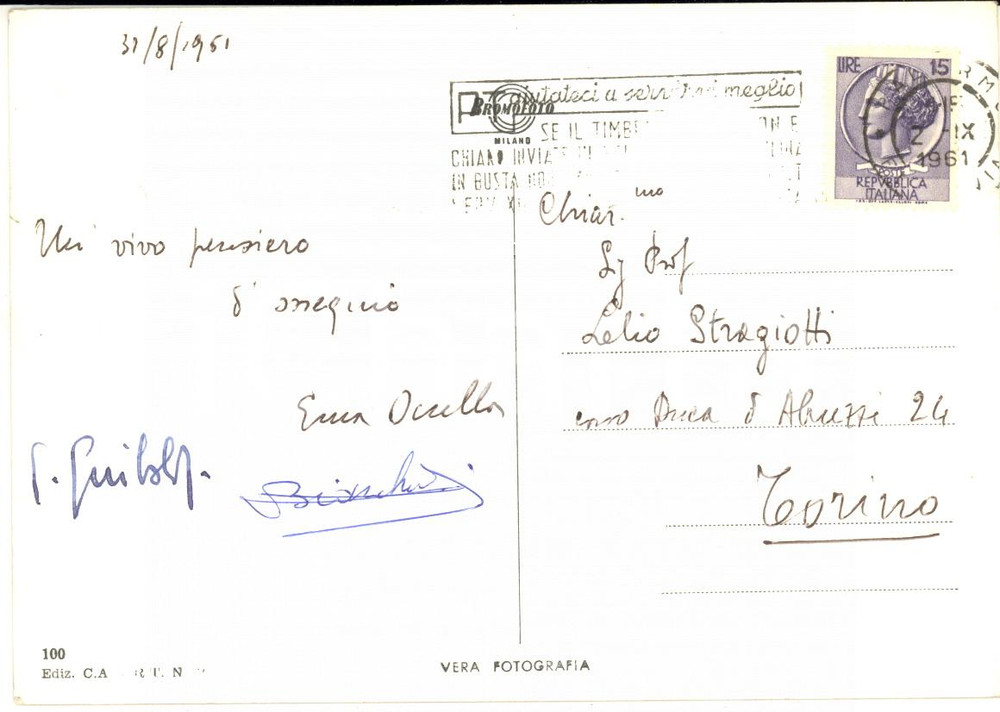 31/8/1961
PT aiutateci a servirvi meglio
BROMOFOTO
MILANO
SE IL TIMBR
CHIARO INVIATE
IN BUSTA
LIRE 15
REPVBBLICA
ITALIANA
2 - IX
1961
Chiar.mo
Sg Prof
Lelio Stragiotti
corso Duca d'Abruzzi 24
Torino
Un vivo pensiero
d'ossequio
Bianchini
100
Ediz. C.A R.T. N
VERA FOTOGRAFIA